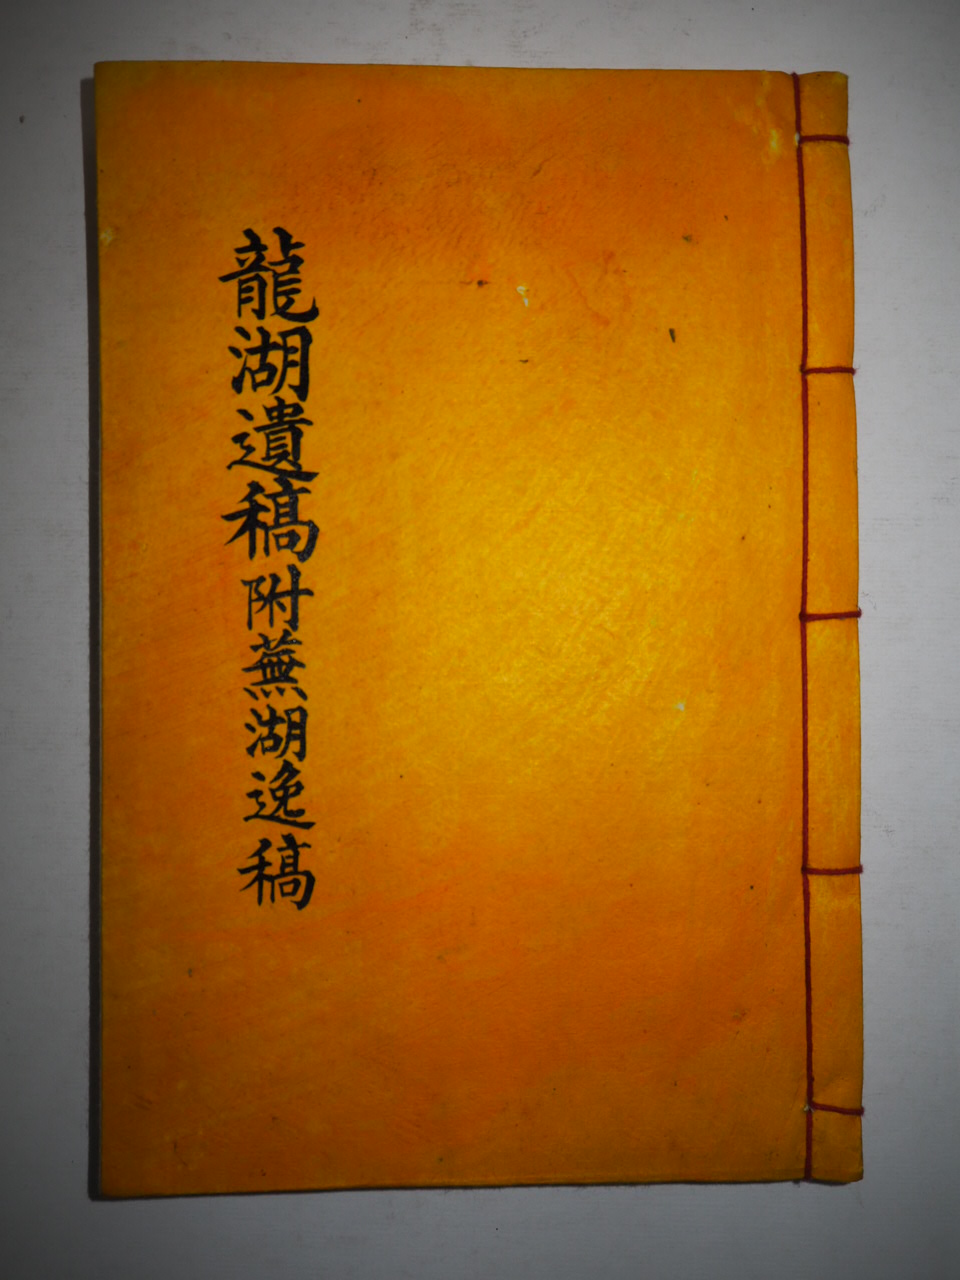 龍湖遺稿附蕪湖逸稿